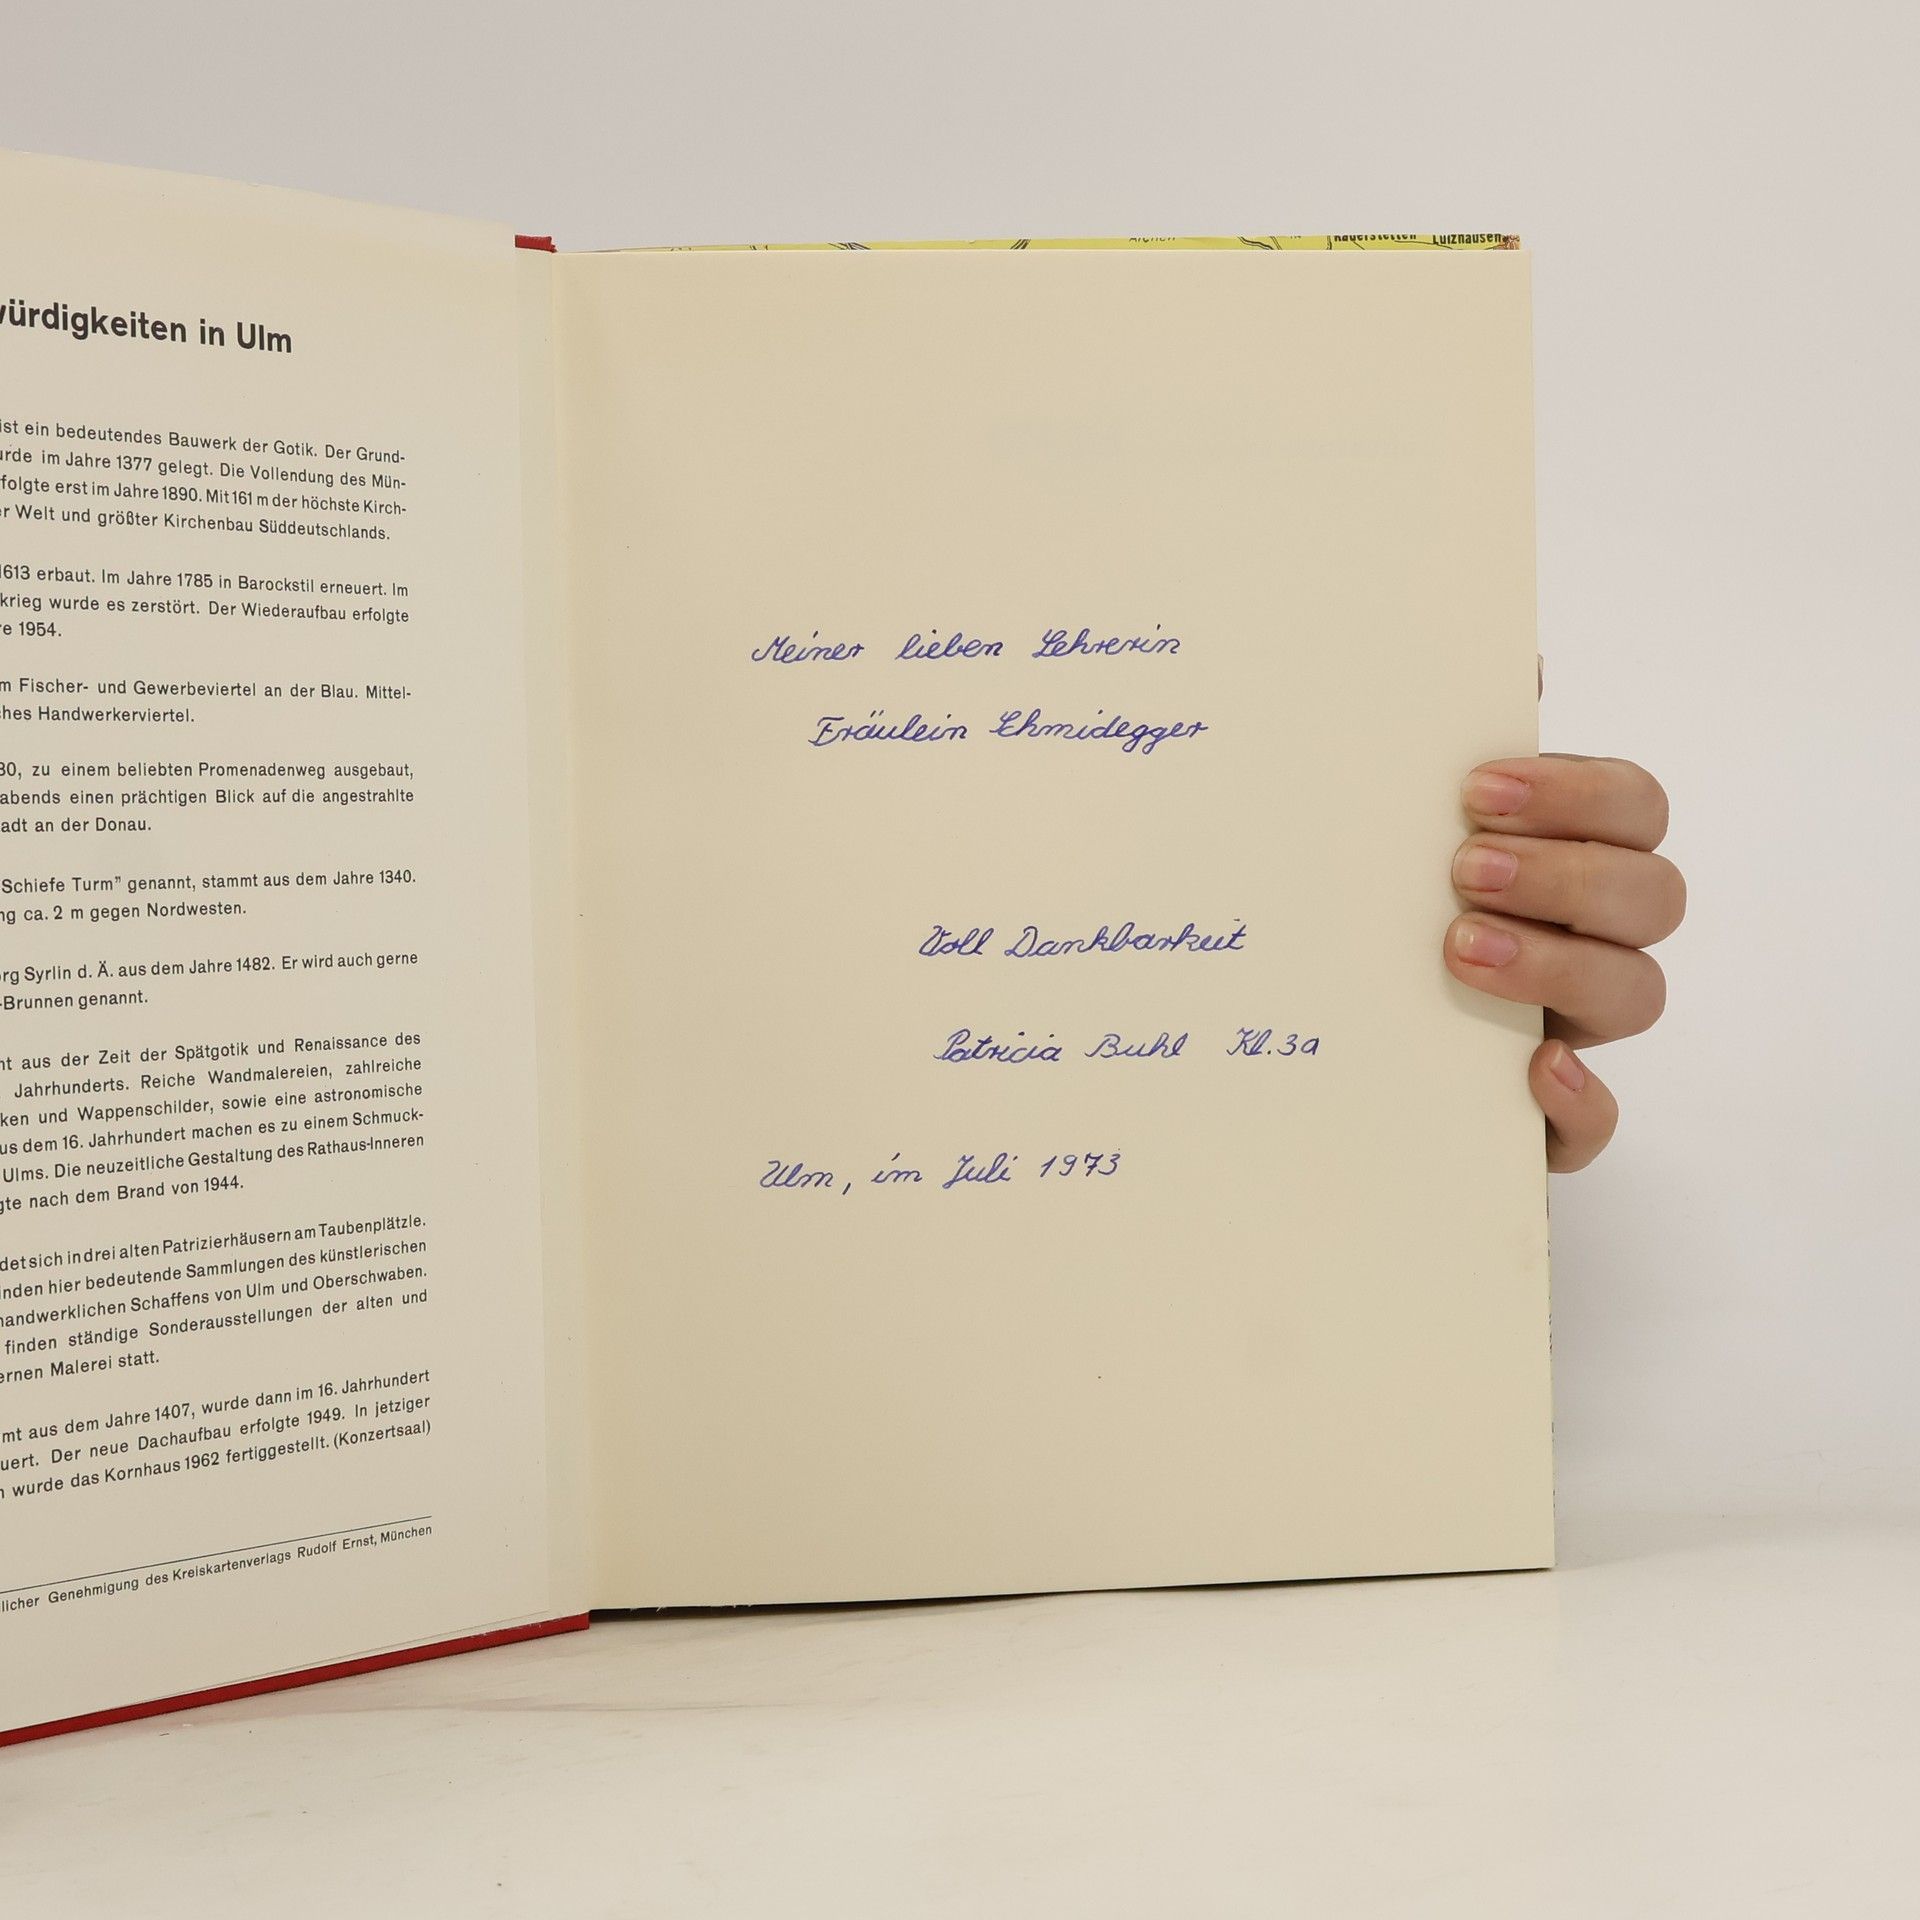 würdigkeiten in Ulm
ist ein bedeutendes Bauwerk der Gotik. Der Grund-
urde im Jahre 1377 gelegt. Die Vollendung des Mün-
folgte erst im Jahre 1890. Mit 161 m der höchste Kirch-
er Welt und größter Kirchenbau Süddeutschlands.
1613 erbaut. Im Jahre 1785 in Barockstil erneuert. Im
krieg wurde es zerstört. Der Wiederaufbau erfolgte
re 1954.
m Fischer- und Gewerbeviertel an der Blau. Mittel-
ches Handwerkerviertel.
80, zu einem beliebten Promenadenweg ausgebaut,
abends einen prächtigen Blick auf die angestrahlte
adt an der Donau.
Schiefe Turm” genannt, stammt aus dem Jahre 1340.
ng ca. 2 m gegen Nordwesten.
org Syrlin d. Ä. aus dem Jahre 1482. Er wird auch gerne
-Brunnen genannt.
nt aus der Zeit der Spätgotik und Renaissance des
. Jahrhunderts. Reiche Wandmalereien, zahlreiche
ken und Wappenschilder, sowie eine astronomische
us dem 16. Jahrhundert machen es zu einem Schmuck-
Ulms. Die neuzeitliche Gestaltung des Rathaus-Inneren
gte nach dem Brand von 1944.
det sich in drei alten Patrizierhäusern am Taubenplätzle.
inden hier bedeutende Sammlungen des künstlerischen
handwerklichen Schaffens von Ulm und Oberschwaben.
finden ständige Sonderausstellungen der alten und
ernen Malerei statt.
mt aus dem Jahre 1407, wurde dann im 16. Jahrhundert
uert. Der neue Dachaufbau erfolgte 1949. In jetziger
n wurde das Kornhaus 1962 fertiggestellt. (Konzertsaal)
licher Genehmigung des Kreiskartenverlags Rudolf Ernst, München
Luizhausen
Meiner lieben Lehrerin
Fräulein Schmidegger
Voll Dankbarkeit
Patricia Buhl Kl. 3a
Ulm, im Juli 1973